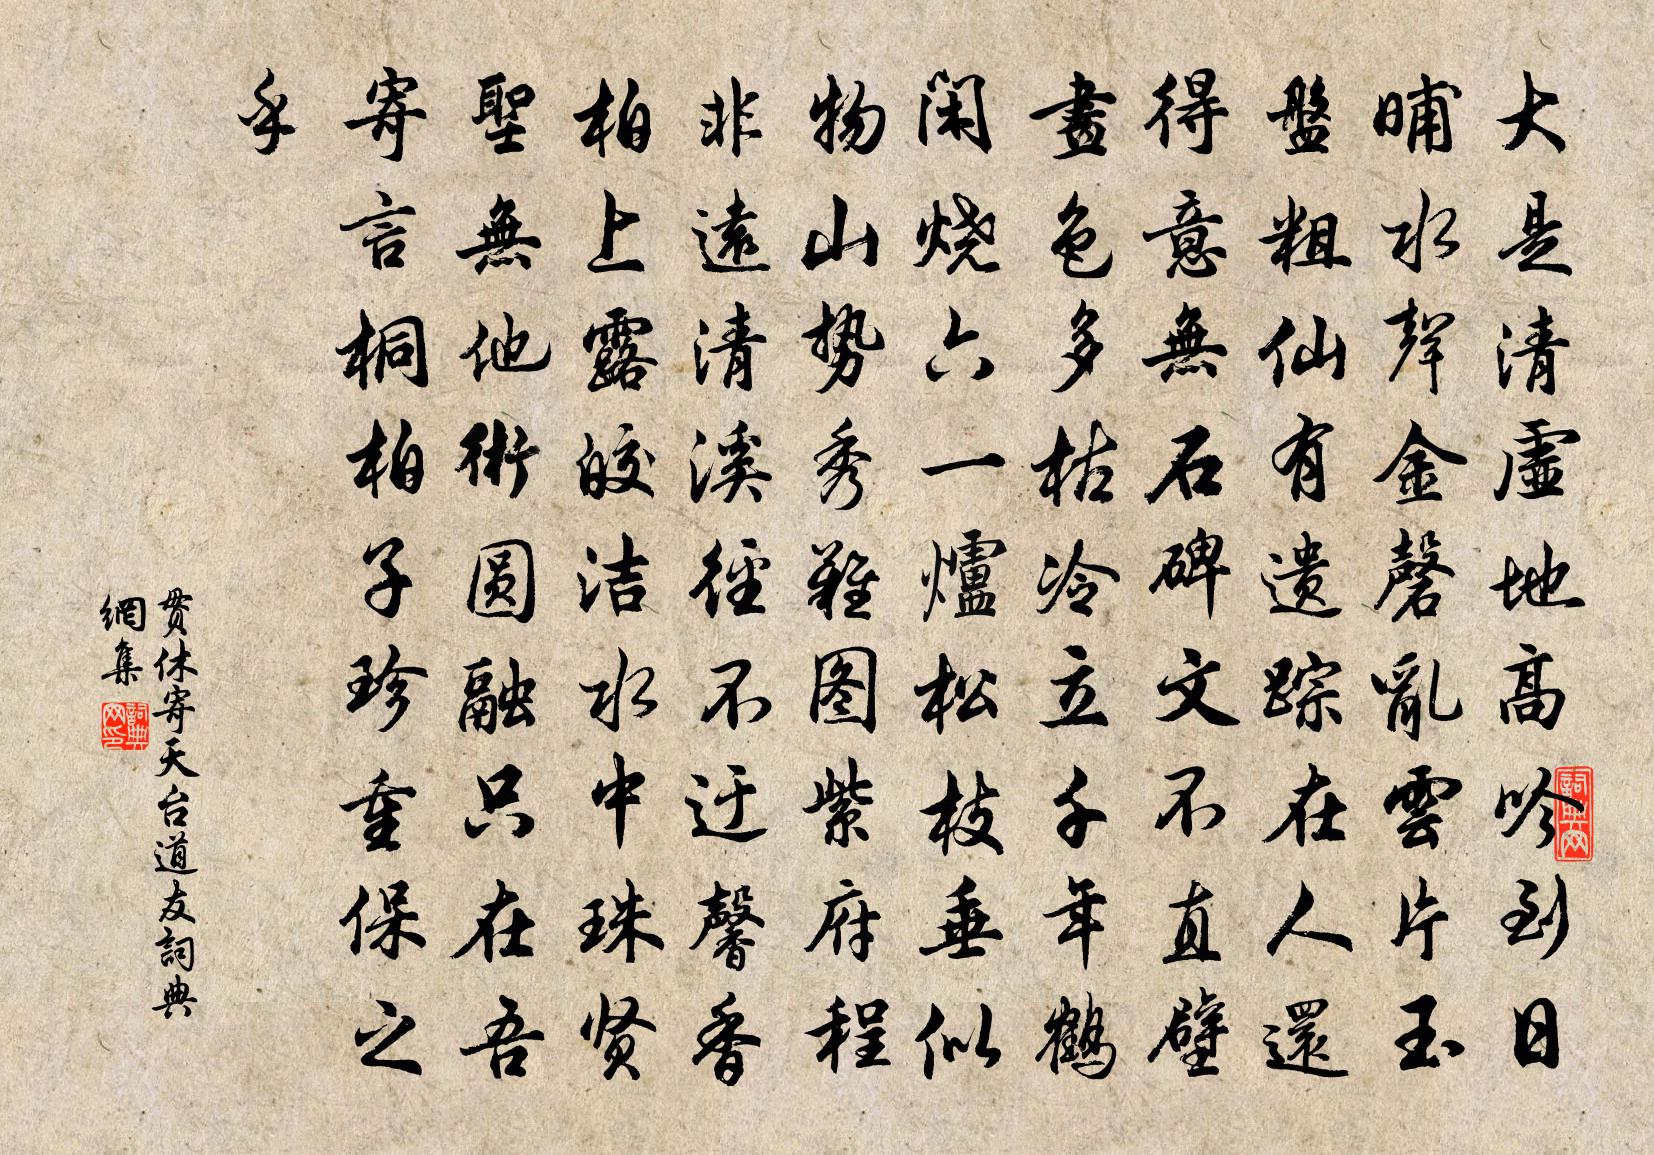 大是清虛地高吟到日
晡水聲金磬亂雲片玉
盤粗仙有遺踪在人還
得意無石碑文不直壁
畫色多枯冷立千年鶴
閑燒六一爐松枝垂似
物山勢秀難图紫府程
非遠清溪徑不迂馨香
柏上露皎洁水中珠贤
聖無他術圆融只在吾
寄言桐柏子珍重保之
乎
貫休寄天台道友詞典
網集
詞典網
詞典網印